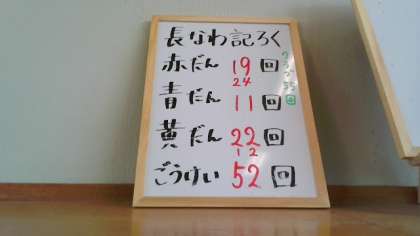 長なわ記ろく
赤だん 19回
24
青だん 11回
黄だん 22回
12
ごうけい 52回